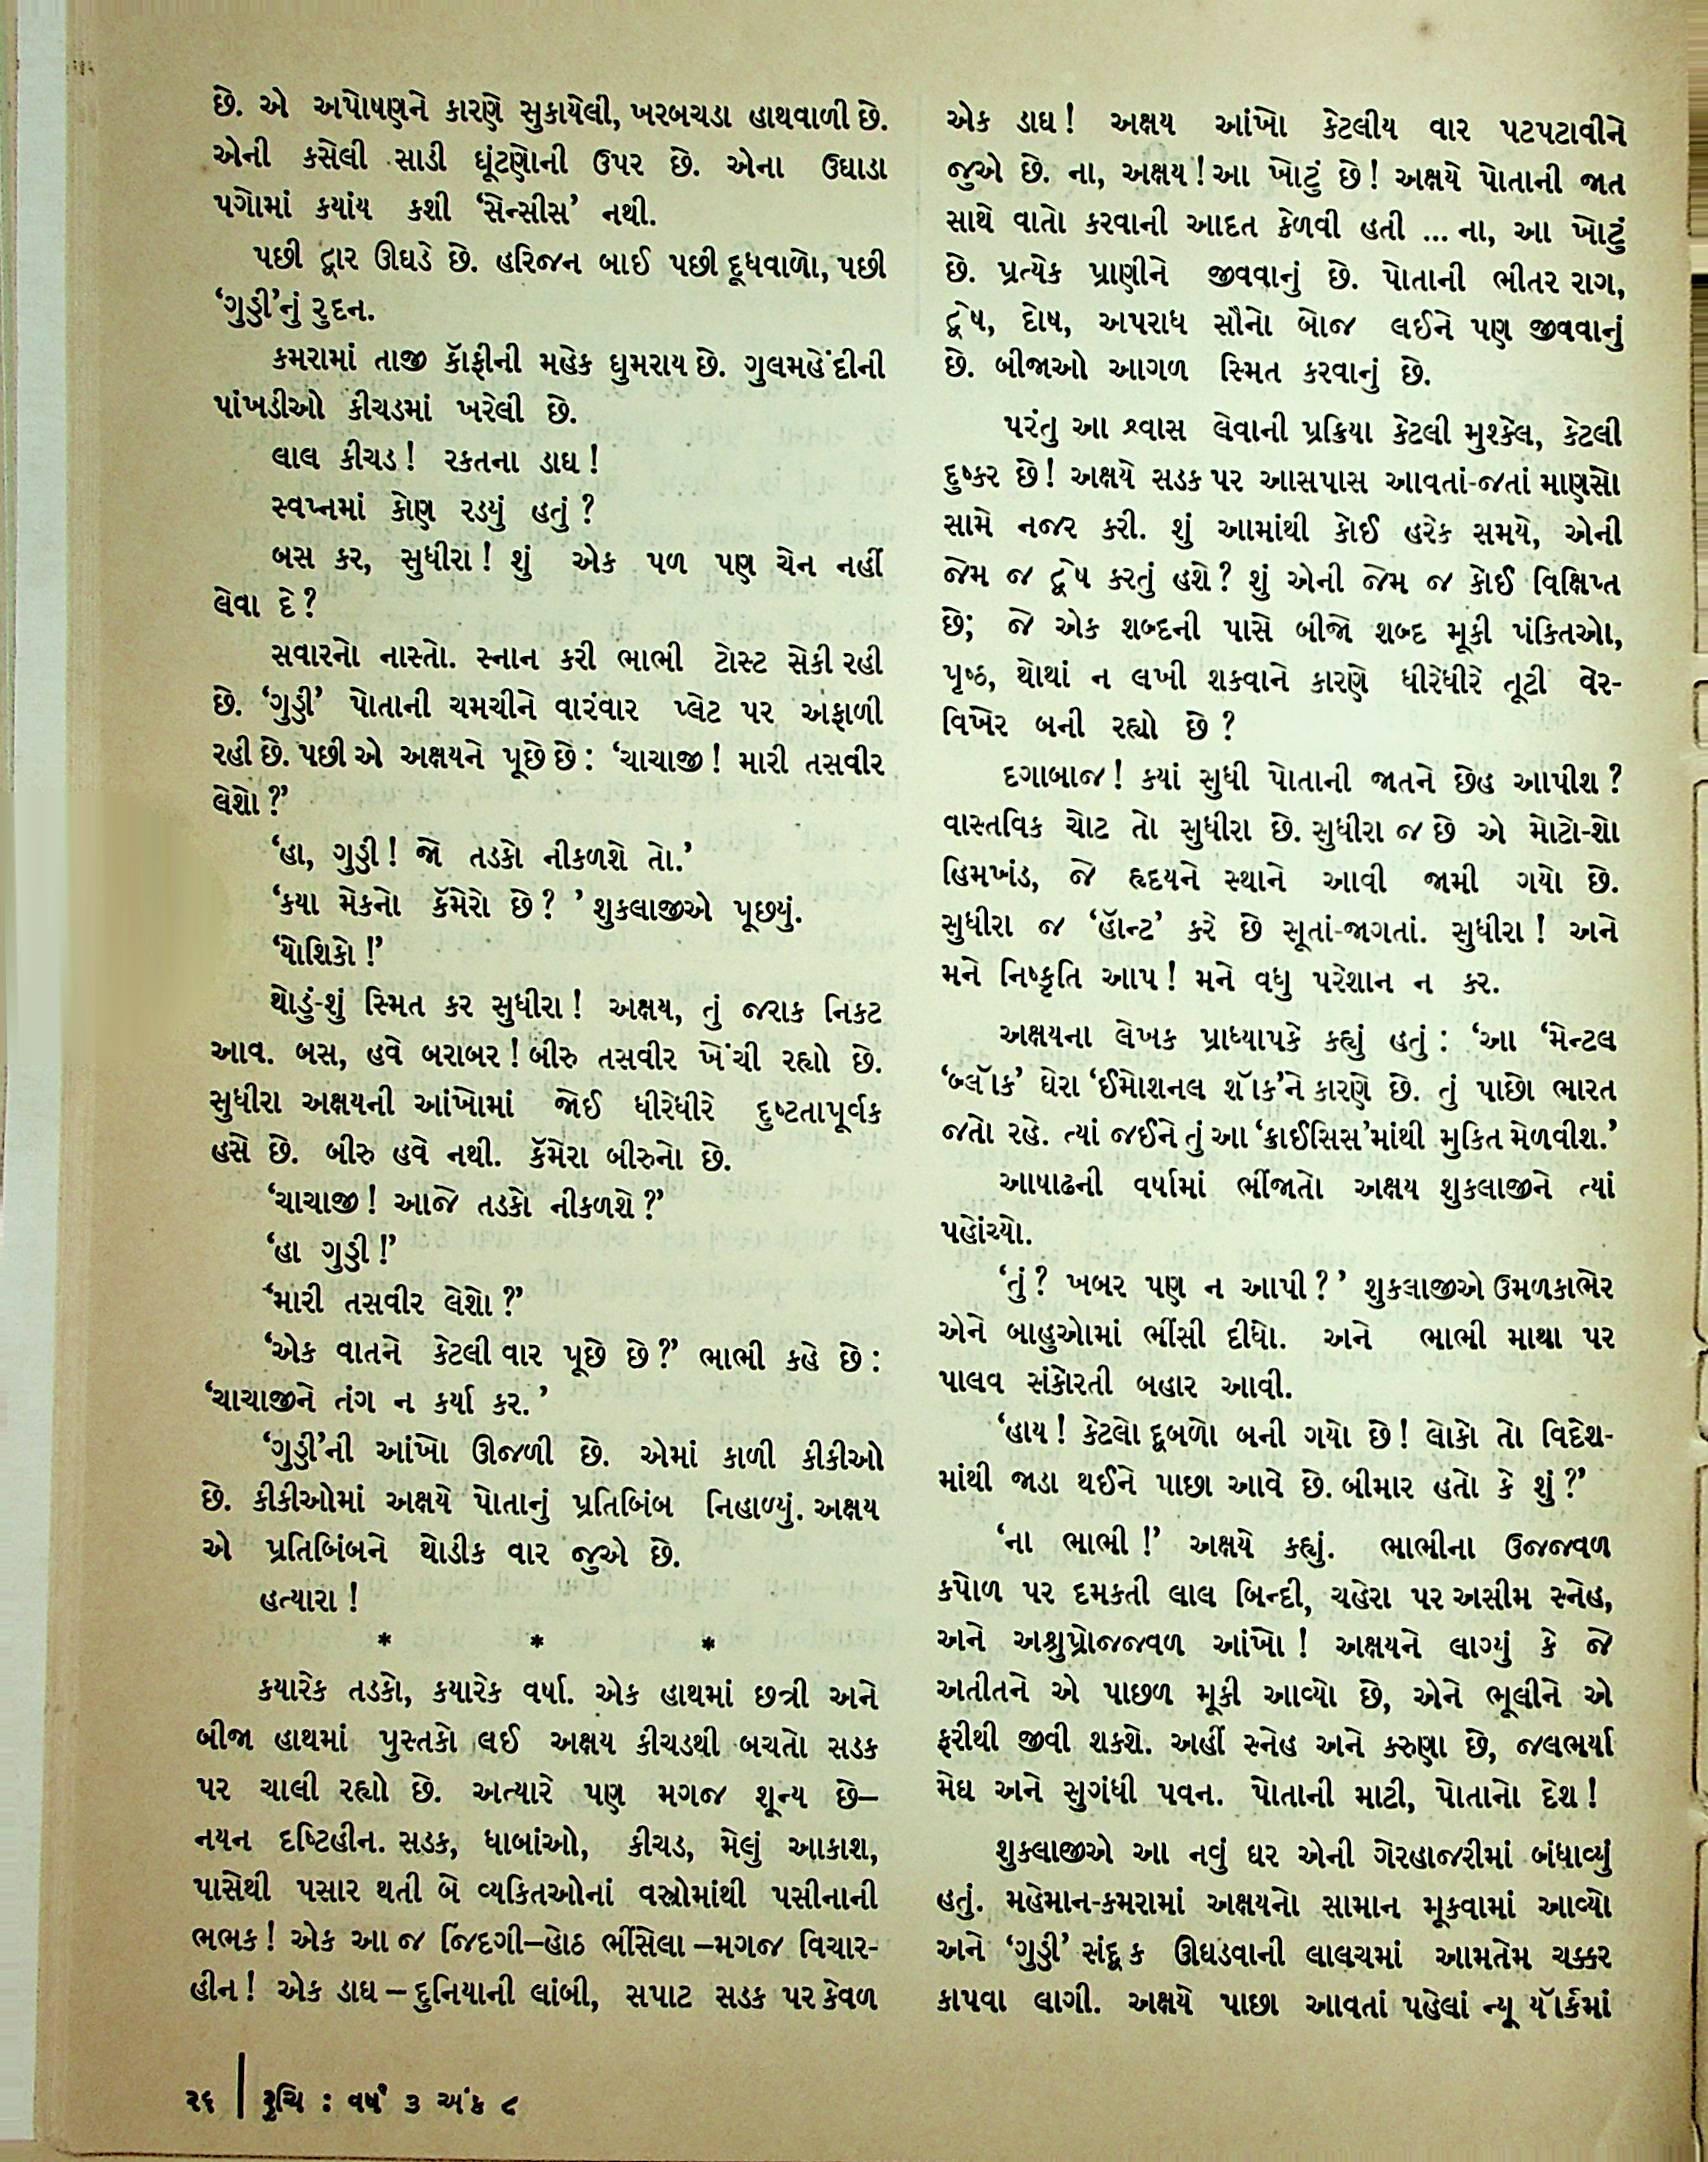 છે. એ અપોષણને કારણે સુકાયેલી, ખરબચડા હાથવાળી છે.
એની કસેલી સાડી ઘૂંટણોની ઉપર છે. એના ઉઘાડા
પગોમાં કયાંય કશી ‘સેન્સીસ’ નથી.
પછી દ્વાર ઊઘડે છે. હરિજન બાઈ પછી દૂધવાળો, પછી
‘ગુડ્ડી’નું રુદન.
કમરામાં તાજી કૉફીની મહેક ઘુમરાય છે. ગુલમહેંદીની
પાંખડીઓ કીચડમાં ખરેલી છે.
લાલ કીચડ! રકતના ડાઘ!
સ્વપ્નમાં કોણ રડયું હતું?
બસ કર, સુધીરા! શું એક પળ પણ ચેન નહીં
લેવા દે?
સવારનો નાસ્તો. સ્નાન કરી ભાભી ટોસ્ટ સેકી રહી
છે. ‘ગુડ્ડી’ પોતાની ચમચીને વારંવાર પ્લેટ પર અફાળી
રહી છે. પછી એ અક્ષયને પૂછે છે: ‘ચાચાજી! મારી તસવીર
લેશો?’
‘હા, ગુડ્ડી! જો તડકો નીકળશે તો.’
‘કયા મેકનો કૅમેરો છે?’ શુકલાજીએ પૂછયું.
‘યોશિકો!’
થોડું-શું સ્મિત કર સુધીરા! અક્ષય, તું જરાક નિકટ
આવ. બસ, હવે બરાબર! બીરુ તસવીર ખેંચી રહ્યો છે.
સુધીરા અક્ષયની આંખોમાં જોઈ ધીરેધીરે દુષ્ટતાપૂર્વક
હસે છે. બીરુ હવે નથી. કૅમેરા બીરુનો છે.
‘ચાચાજી! આજે તડકો નીકળશે?’
‘હા ગુડ્ડી!’
‘મારી તસવીર લેશો?’
‘એક વાતને કેટલી વાર પૂછે છે?’ ભાભી કહે છે:
‘ચાચાજીને તંગ ન કર્યા કર.’
‘ગુડ્ડી’ની આંખો ઊજળી છે. એમાં કાળી કીકીઓ
છે. કીકીઓમાં અક્ષયે પોતાનું પ્રતિબિંબ નિહાળ્યું. અક્ષય
એ પ્રતિબિંબને થોડીક વાર જુએ છે.
હત્યારા!
* * *
કયારેક તડકો, કયારેક વર્ષા. એક હાથમાં છત્રી અને
બીજા હાથમાં પુસ્તકો લઈ અક્ષય કીચડથી બચતો સડક
પર ચાલી રહ્યો છે. અત્યારે પણ મગજ શૂન્ય છે–
નયન દષ્ટિહીન. સડક, ધાબાંઓ, કીચડ, મેલું આકાશ,
પાસેથી પસાર થતી બે વ્યકિતઓનાં વસ્ત્રોમાંથી પસીનાની
ભભક! એક આ જ જિંદગી–હોઠ ભીંસેલા –મગજ વિચાર-
હીન! એક ડાઘ – દુનિયાની લાંબી, સપાટ સડક પર કેવળ
એક ડાઘ! અક્ષય આંખો કેટલીય વાર પટપટાવીને
જુએ છે. ના, અક્ષય! આ ખોટું છે! અક્ષયે પોતાની જાત
સાથે વાતો કરવાની આદત કેળવી હતી ... ના, આ ખોટું
છે. પ્રત્યેક પ્રાણીને જીવવાનું છે. પોતાની ભીતર રાગ,
દ્વેષ, દોષ, અપરાધ સૌનો બોજ લઈને પણ જીવવાનું
છે. બીજાઓ આગળ સ્મિત કરવાનું છે.
પરંતુ આ શ્વાસ લેવાની પ્રક્રિયા કેટલી મુશ્કેલ, કેટલી
દુષ્કર છે! અક્ષયે સડક પર આસપાસ આવતાં-જતાં માણસો
સામે નજર કરી. શું આમાંથી કોઈ હરેક સમયે, એની
જેમ જ દ્વેષ કરતું હશે? શું એની જેમ જ કોઈ વિક્ષિપ્ત
છે; જે એક શબ્દની પાસે બીજો શબ્દ મૂકી પંકિતઓ,
પૃષ્ઠ, થોથાં ન લખી શકવાને કારણે ધીરેધીરે તૂટી વેર-
વિખેર બની રહ્યો છે?
દગાબાજ! કયાં સુધી પોતાની જાતને છેહ આપીશ?
વાસ્તવિક ચોટ તો સુધીરા છે. સુધીરા જ છે એ મોટો-શો
હિમખંડ, જે હૃદયને સ્થાને આવી જામી ગયો છે.
સુધીરા જ ‘હૉન્ટ’ કરે છે સૂતાં-જાગતાં. સુધીરા! અને
મને નિષ્કૃતિ આપ! મને વધુ પરેશાન ન કર.
અક્ષયના લેખક પ્રાધ્યાપકે કહ્યું હતું: ‘આ ‘મેન્ટલ
‘બ્લૉક’ ઘેરા ‘ઈમોશનલ શૉક’ને કારણે છે. તું પાછો ભારત
જતો રહે. ત્યાં જઈને તું આ ‘ક્રાઈસિસ’માંથી મુકિત મેળવીશ.’
આષાઢની વર્ષામાં ભીંજાતો અક્ષય શુકલાજીને ત્યાં
પહોંચ્યો.
‘તું? ખબર પણ ન આપી?’ શુકલાજીએ ઉમળકાભેર
એને બાહુઓમાં ભીંસી દીધો. અને ભાભી માથા પર
પાલવ સંકોરતી બહાર આવી.
‘હાય! કેટલો દૂબળો બની ગયો છે! લોકો તો વિદેશ-
માંથી જાડા થઈને પાછા આવે છે. બીમાર હતો કે શું?’
‘ના ભાભી!’ અક્ષયે કહ્યું. ભાભીના ઉજજવળ
કપોળ પર દમકતી લાલ બિન્દી, ચહેરા પર અસીમ સ્નેહ,
અને અશ્રુપ્રોજજવળ આંખો! અક્ષયને લાગ્યું કે જે
અતીતને એ પાછળ મૂકી આવ્યો છે, એને ભૂલીને એ
ફરીથી જીવી શકશે. અહીં સ્નેહ અને કરુણા છે, જલભર્યા
મેઘ અને સુગંધી પવન. પોતાની માટી, પોતાનો દેશ!
શુકલાજીએ આ નવું ઘર એની ગેરહાજરીમાં બંધાવ્યું
હતું. મહેમાન-કમરામાં અક્ષયનો સામાન મૂકવામાં આવ્યો
અને ‘ગુડ્ડી’ સંદૂક ઊઘડવાની લાલચમાં આમતેમ ચક્કર
કાપવા લાગી. અક્ષયે પાછા આવતાં પહેલાં ન્યૂ યૉર્કમાં
૨૬ | રુચિ : વર્ષ ૩ અંક ૮